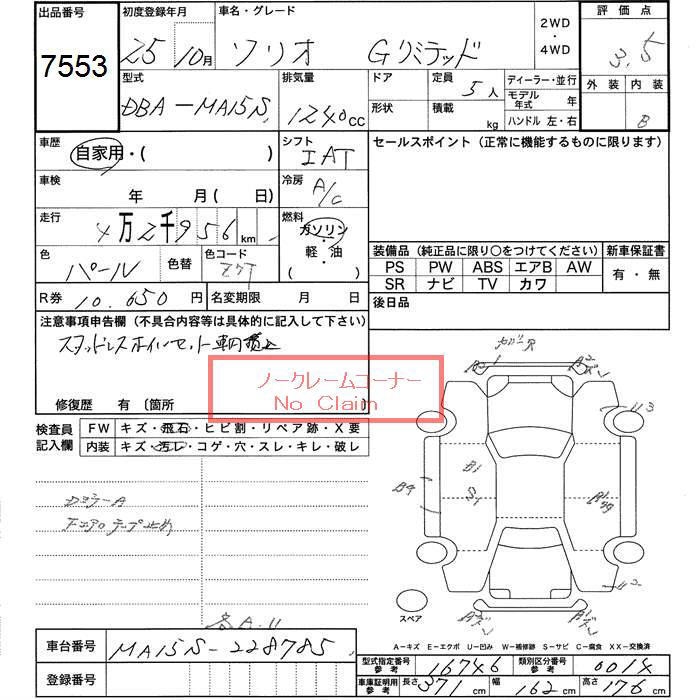 出品番号 初度登録年月 車名・グレード 2WD ・ 4WD 評価点
7553 25 10月 ソリオ Gリミテッド 3.5
型式 排気量 ドア 定員 5人 ディーラー・並行 外装 内装
DBA-MA15S 1240cc 形状 積載 kg モデル年式 年 ハンドル 左・右 B
車歴 自家用・( ) シフト IAT セールスポイント(正常に機能するものに限ります)
車検 年 月(日) 冷房 A/C
走行 4万2千956km 燃料 ガソリン・軽・油 ( )
装備品(純正品に限り○をつけてください) 新車保証書
色 パール 色替 色コード Z7T PS PW ABS エアB AW 有・無
SR ナビ TV カワ
R券 10,650円 名変期限 月 日 後日品
注意事項申告欄(不具合内容等は具体的に記入して下さい)
スタッドレスホイルセット車両積込
ノークレームコーナー
No Claim
修復歴 有〔箇所 〕
検査員記入欄 FW キズ・飛石・ヒビ割・リペア跡・X要
内装 キズ・汚レ・コゲ・穴・スレ・キレ・破レ
スペア
A-キズ E-エクボ U-凹み W-補修跡 S-サビ C-腐食 XX-交換済
車台番号 MA15S-228785
登録番号
型式指定番号 参考 16746 類別区分番号 参考
車庫証明用 参考 長さ 371cm 幅 162cm 高さ 176cm